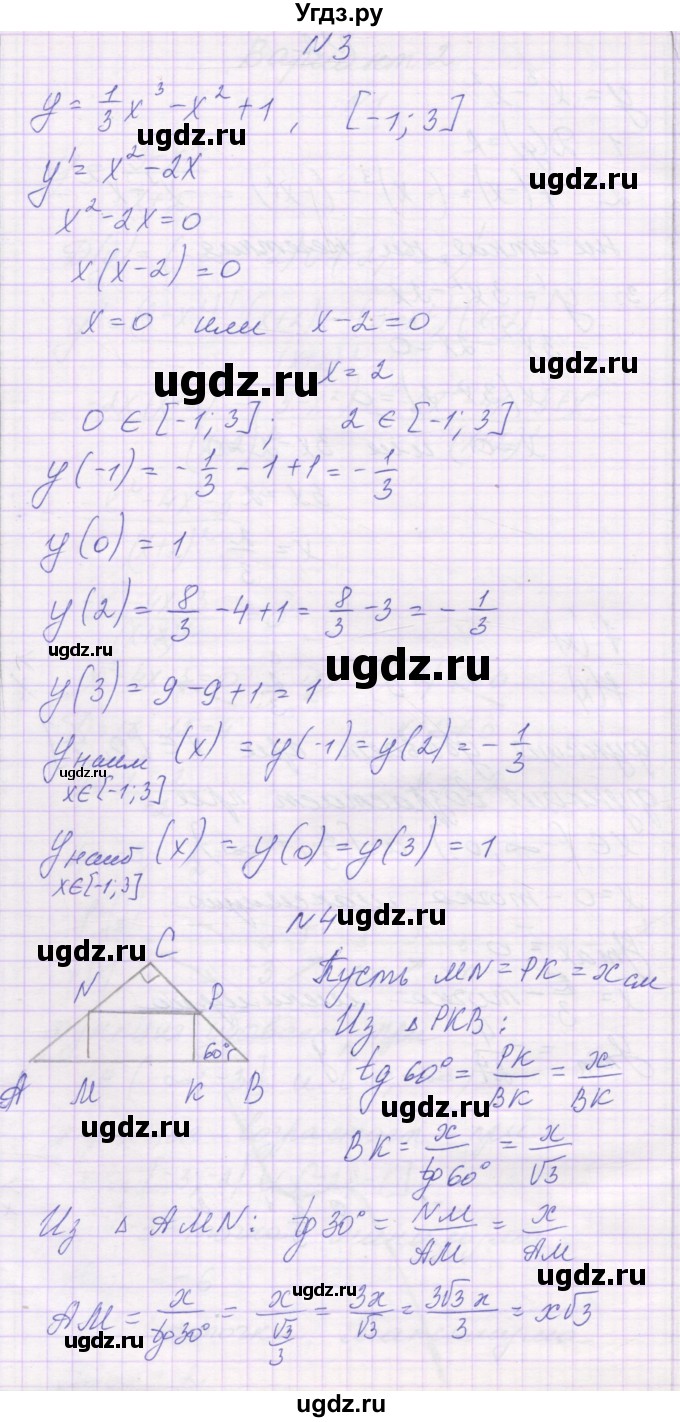 Угдз.ру
N 3
y = 1/3 x³ − x² + 1 , [-1; 3]
ugdz.ru
y' = x² − 2x
ugdz.ru
x² − 2x = 0
x(x−2) = 0
x = 0 или x − 2 = 0
ugdz.ru
ugdz.ru
x = 2
0 ∈ [-1; 3]; 2 ∈ [-1; 3]
y(-1) = − 1/3 − 1 + 1 = − 1/3
y(0) = 1
y(2) = 8/3 − 4 + 1 = 8/3 − 3 = − 1/3
ugdz.ru
ugdz.ru
y(3) = 9 − 9 + 1 = 1
y наим (x) = y(-1) = y(2) = − 1/3
ugdz.ru
x∈[-1; 3]
y наиб (x) = y(0) = y(3) = 1
x∈[-1;3]
N 4
ugdz.ru
ugdz.ru
C
N P
60°
A M K B
Пусть MN = PK = x см
Из △ PKB:
tg 60° = PK/BK = x/BK
ugdz.ru
ugdz.ru
BK = x/tg60° = x/√3
Из △ AMN: tg 30° = NM/AM = x/AM
ugdz.ru
ugdz.ru
AM = x/tg30° = x/(√3/3) = 3x/√3 = 3√3 x/3 = x√3
ugdz.ru
ugdz.ru
ugdz.ru